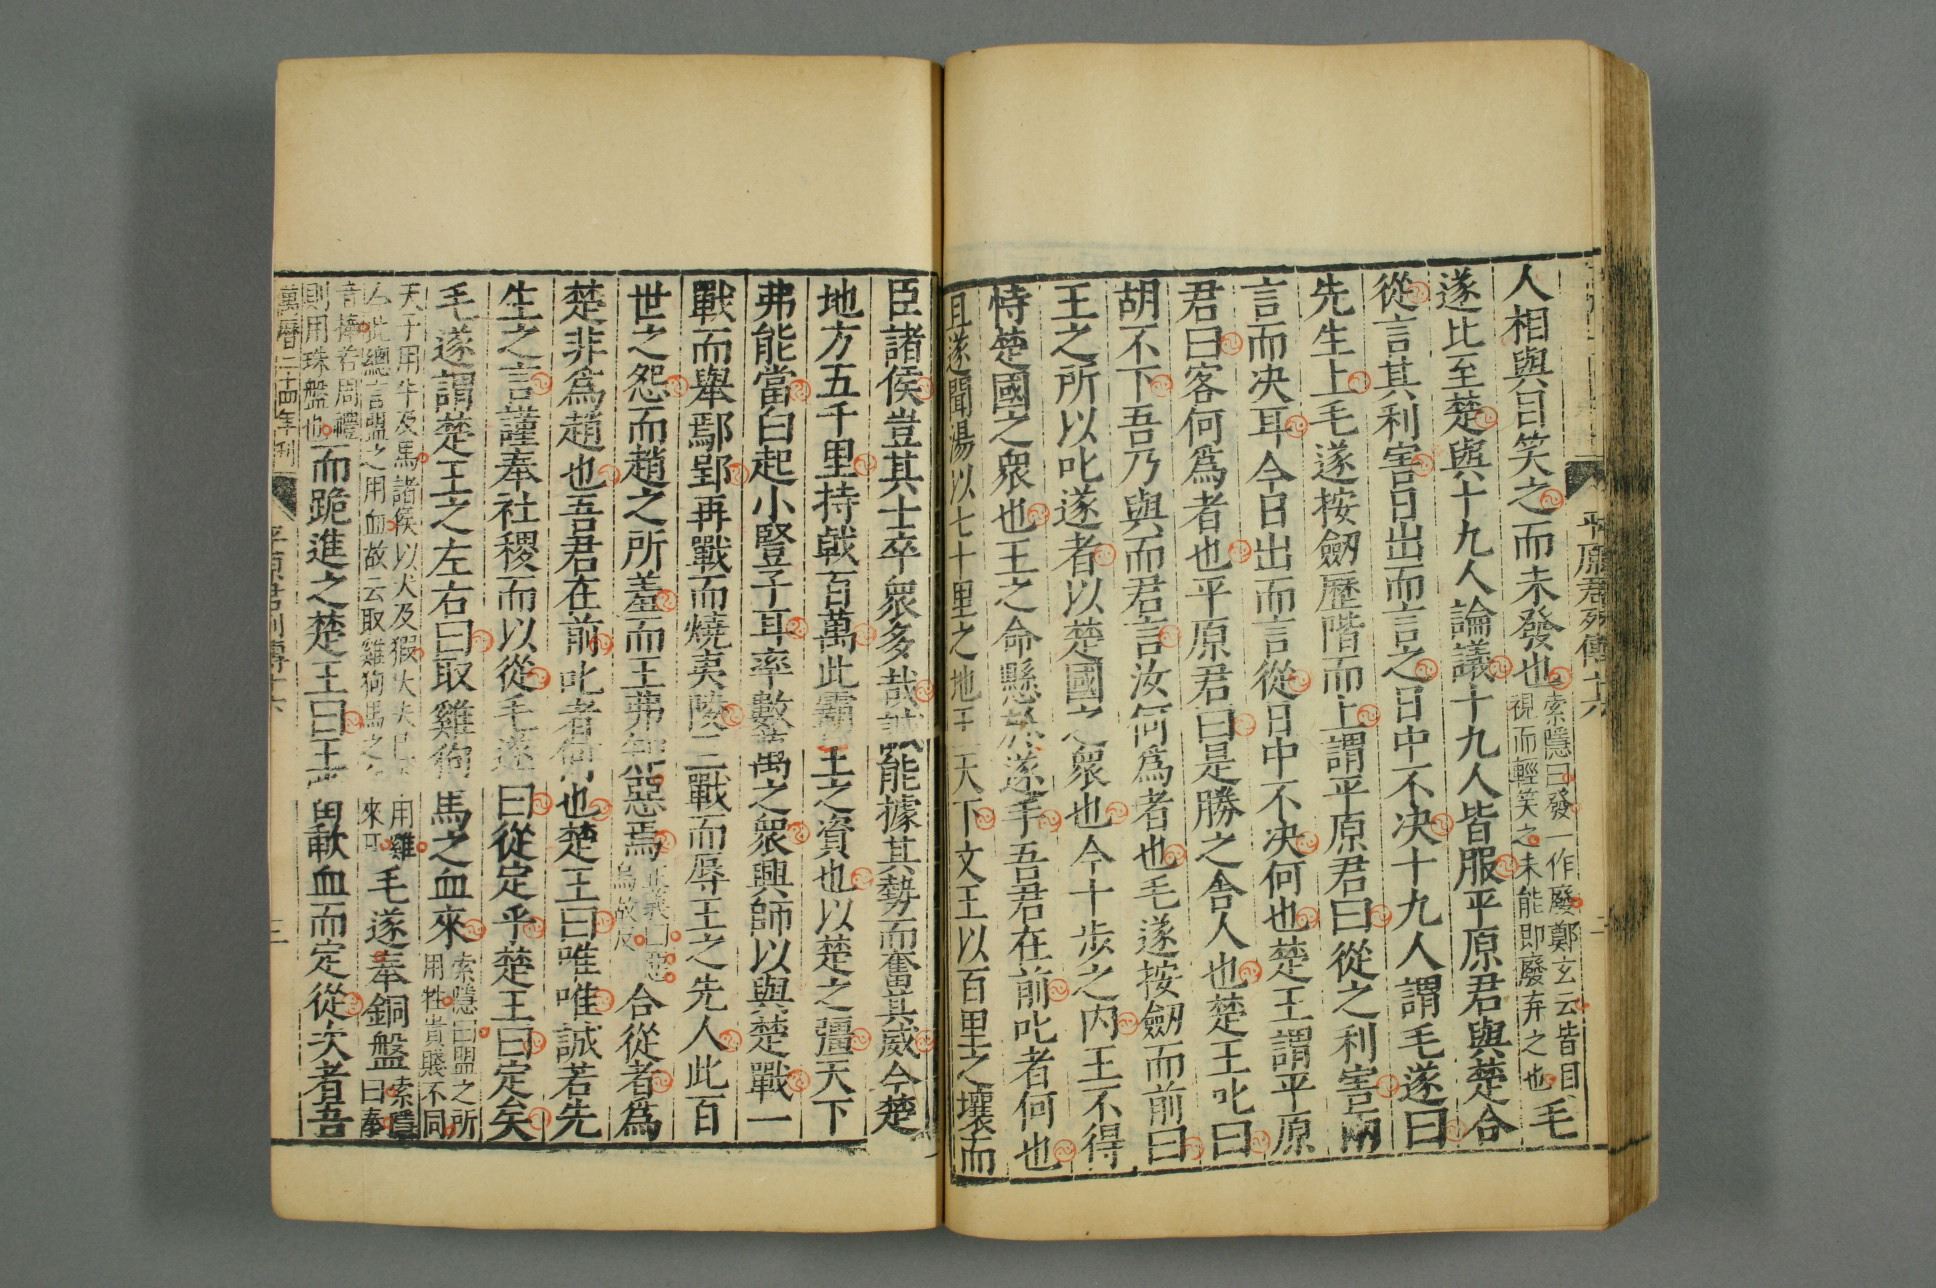 平原君列傳十六
二
人相與目笑之而未發也索隱曰發一作廢鄭玄云皆目
視而輕笑之未能即廢弃之也毛
遂比至楚與十九人論議十九人皆服平原君與楚合
從言其利害日出而言之日中不决十九人謂毛遂曰
先生上毛遂按劒歷階而上謂平原君曰從之利害兩
言而决耳今日出而言從日中不决何也楚王謂平原
君曰客何爲者也平原君曰是勝之舍人也楚王叱曰
胡不下吾乃與而君言汝何爲者也毛遂按劒而前曰
王之所以叱遂者以楚國之衆也今十步之内王不得
恃楚國之衆也王之命懸於遂手吾君在前叱者何也
且遂聞湯以七十里之地王天下文王以百里之壤而
臣諸侯豈其士卒衆多哉誠能據其勢而奮其威今楚
地方五千里持戟百萬此霸王之資也以楚之彊天下
弗能當白起小豎子耳率數萬之衆興師以與楚戰一
戰而舉鄢郢再戰而燒夷陵三戰而辱王之先人此百
世之怨而趙之所羞而王弗知惡焉正義曰惡
烏故反合從者爲
楚非爲趙也吾君在前叱者何也楚王曰唯唯誠若先
生之言謹奉社稷而以從毛遂曰從定乎楚王曰定矣
毛遂謂楚王之左右曰取雞狗馬之血來索隱曰盟之所
用牲貴賤不同
天子用牛及馬諸侯以犬及猳大夫已下用雞
今此總言盟之用血故云取雞狗馬之血來耳毛遂奉銅盤索隱
曰奉
音捧若周禮
則用珠盤也而跪進之楚王曰王當歃血而定從次者吾
萬曆二十四年刊
平原君列傳十六
三